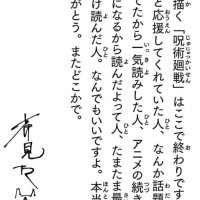 描く「呪術廻戦」はここで終わりです
と応援してくれていた人、なんか話題
てたから一気読みした人、アニメの続き
になるから読んだよって人、たまたま最
け読んだ人。なんでもいいですよ。本当
がとう。またどこかで。